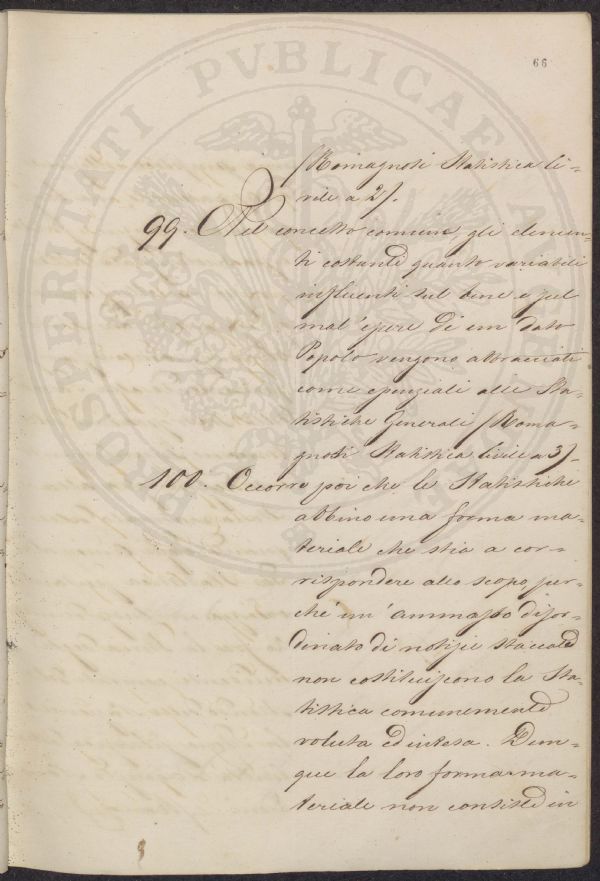 66
(Romagnosi Statistica Ci-
vile a 2).
99. Nel concetto comune, gli elemen-
ti costanti quanto variabili
influenti sul bene e sul
mal'essere di un dato
Popolo vengono abbracciati
come essenziali alle Sta-
tistiche Generali (Roma-
gnosi Statistica Civile a 3)-
100. Occorre poi che le Statistiche
abbino una forma ma-
teriale che stia a cor-
rispondere allo scopo, per-
che un'ammasso disor-
dinato di notizie staccate
non costituiscono la Sta-
tistica comunemente
voluta ed intesa. Dun-
que la loro forma ma-
teriale non consiste in
PROSPERITATI PVBLICAE